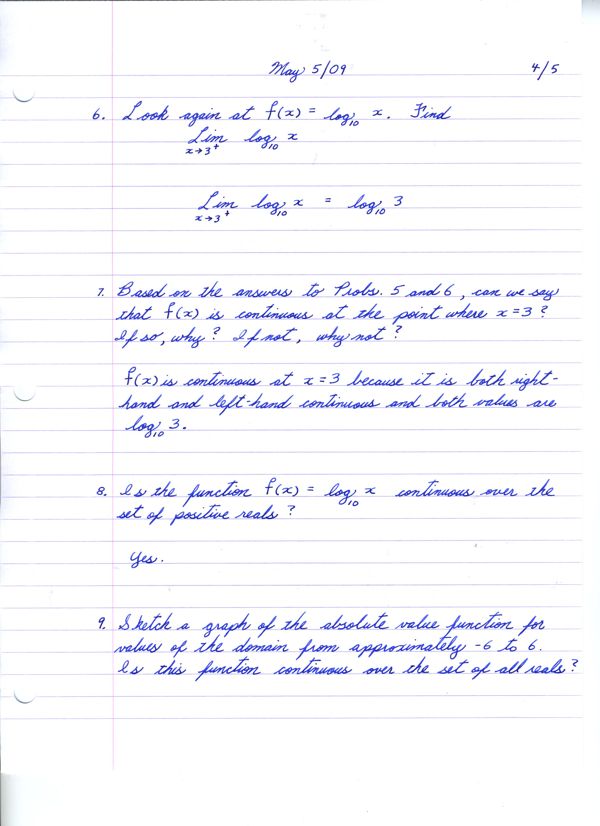 May 5/09 4/5
6. Look again at f(x) = log₁₀ x. Find
Lim log₁₀ x
x→3⁺
Lim log₁₀ x = log₁₀ 3
x→3⁺
7. Based on the answers to Probs. 5 and 6, can we say
that f(x) is continuous at the point where x = 3?
If so, why? If not, why not?
f(x) is continuous at x = 3 because it is both right-
hand and left-hand continuous and both values are
log₁₀ 3.
8. Is the function f(x) = log₁₀ x continuous over the
set of positive reals?
Yes.
9. Sketch a graph of the absolute value function for
values of the domain from approximately -6 to 6.
Is this function continuous over the set of all reals?